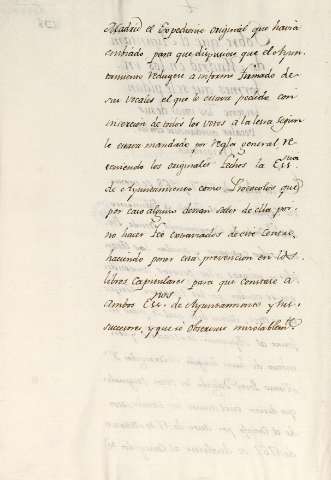 Madrid el Expediente original que havia
embiado para que dispusiese que el Ayun-
tamiento redugese a informe firmado de
sus vocales el que le estava pedido con
insercion de todos los votos a la letra segun
le estava mandado por regla general re-
teniendo los originales Lechos la Ess.nia
de Ayuntamiento como Protocolos que
por caso alguno devian salir de ella por
no hacer Fee estraviados de este
haciendo poner esta prevencion en los
libros Capitulares para que constase a
ambos Ess.nos de Ayuntamiento y sus
succesores, y que se observase inviolablem.te